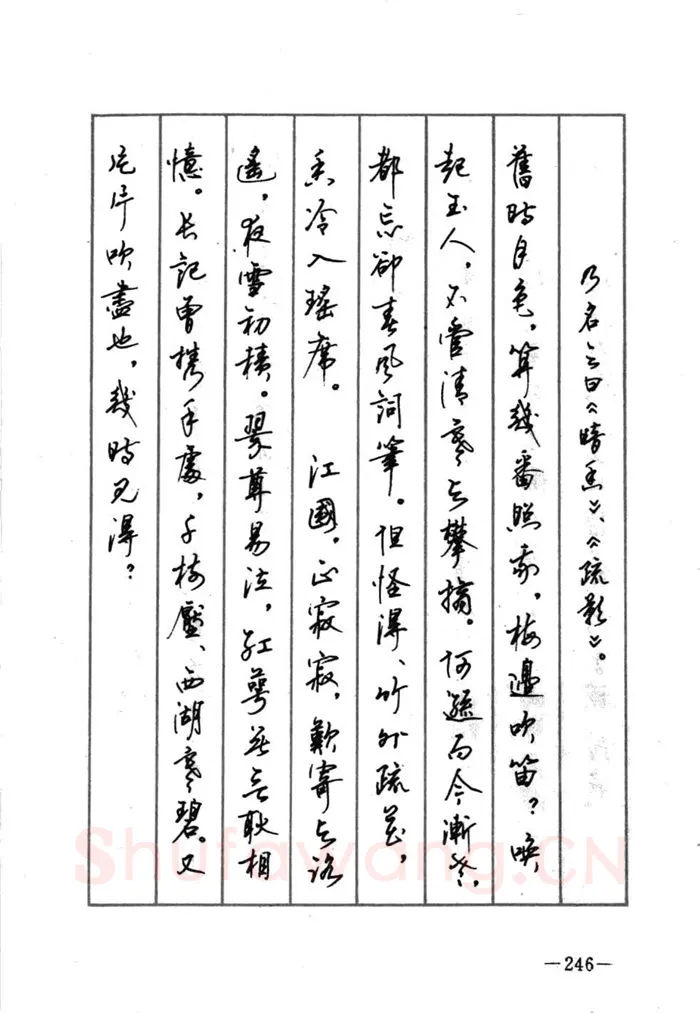 乃名之曰《暗香》、《疏影》。
舊時月色，算幾番照我，梅邊吹笛？喚
起玉人，不管清寒与攀摘。何遜而今漸老，
都忘卻春風詞筆。但怪得、竹外疏花，
香冷入瑤席。 江國，正寂寂，歎寄与路
遙，夜雪初積。翠尊易泣，紅萼無言耿相
憶。长記曾携手處，千樹壓、西湖寒碧。又
片片吹盡也，幾時见得？
—246—
ShufaWang.CN